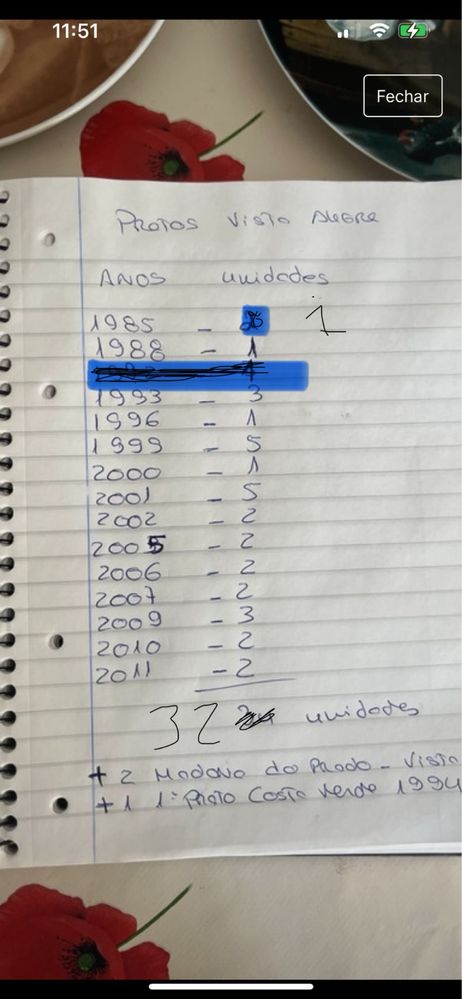 11:51
Fechar
PRATOS VISTA ALEGRE
ANOS unidades
1985 - 1
1988 - 1
1993 - 3
1996 - 1
1999 - 5
2000 - 1
2001 - 5
2002 - 2
2005 - 2
2006 - 2
2007 - 2
2009 - 3
2010 - 2
2011 - 2
32 unidades
+ 2 do Prado - Vista
+ 1 1º Prato Costa Verde 1994